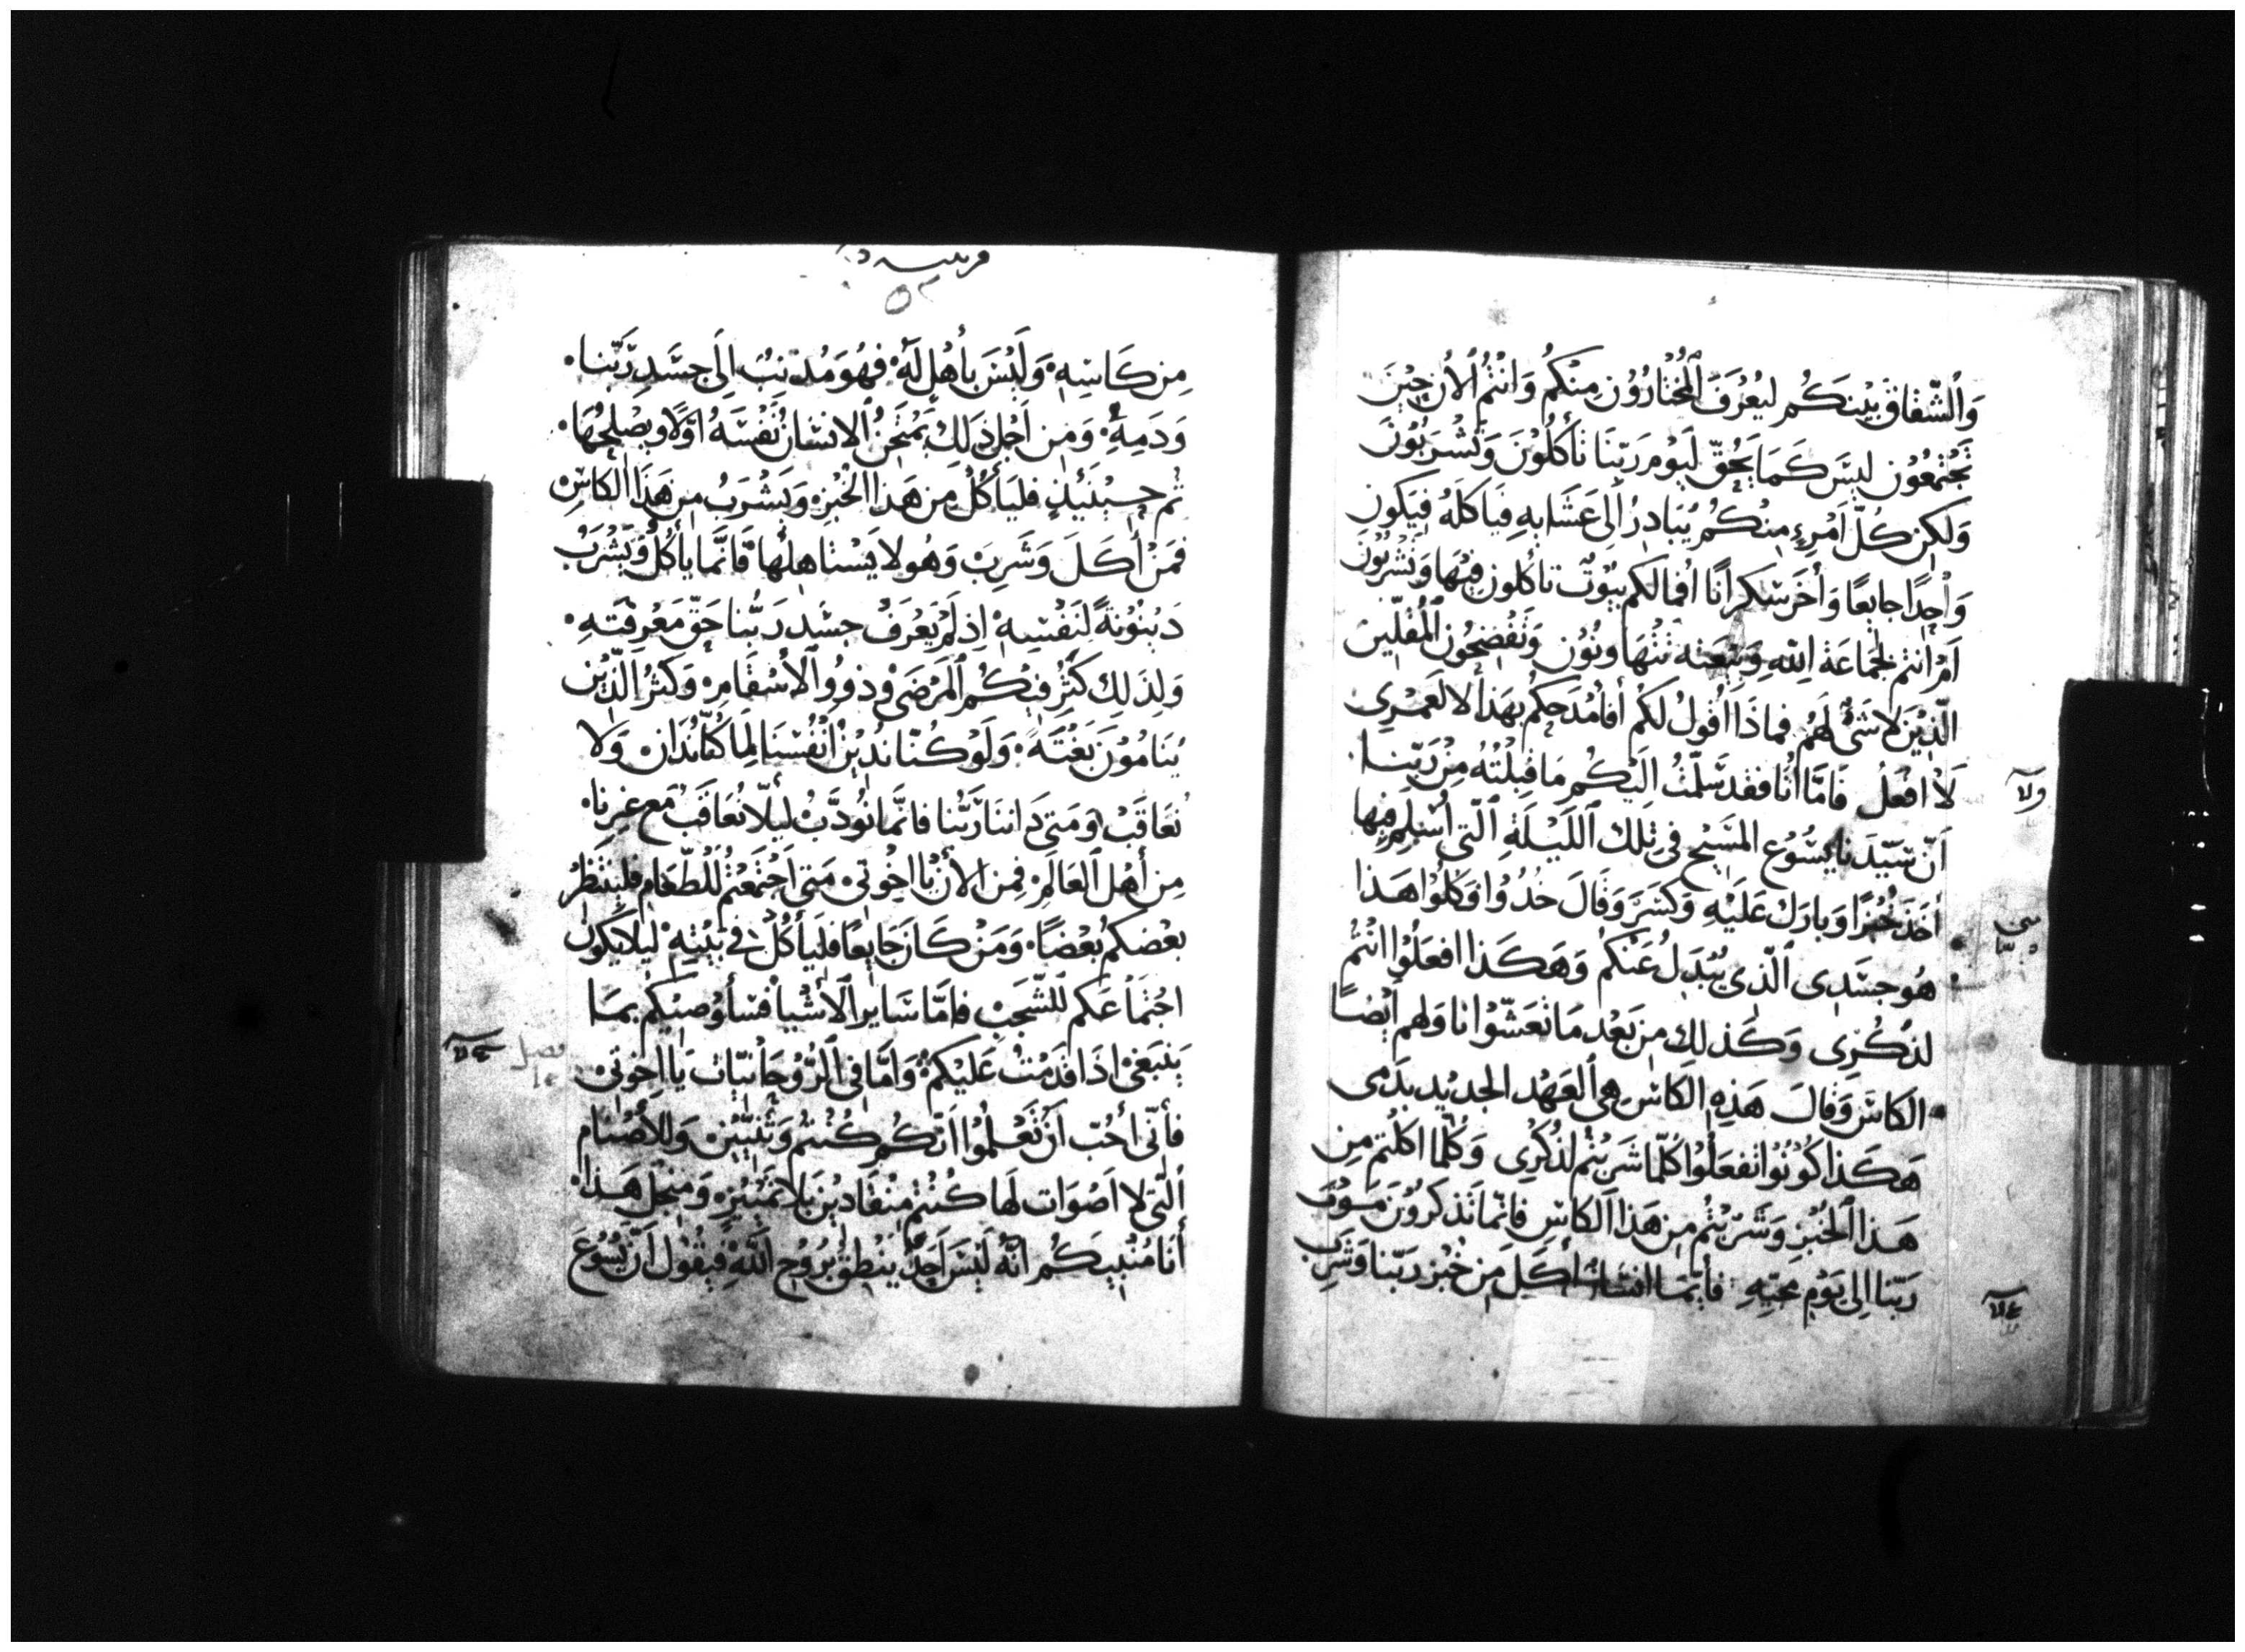 وَالشّقاق بَيْنَكُم ليُعْرَفَ المُخْتارُوْن مِنكُم وَانْتُمُ الأن حِيْنَ
تَجْتَمعُوْن لَيسَ كَمَا يَحُقّ ليَوْم رَبّنَا تأكُلُوْنَ وَتَشْرَبُوْنَ
وَلكِن كُلّ اَمْرِءٍ مِنكُم يُبَادِرُ اِلى عَشَايهِ فيَاكلَهُ فيَكون
وَاحِدًا جايعًا وَأخَر سَكرانًا افمالكم بيُوْت تاكُلون فيْهَا وَتَشْرَبُوْنَ
اَمْ اَنتم لجماعَة اللّهِ وَبيْعته تتهَاونُوْن وَتَفْضحُون المُقلّين
الّذِيْنَ لاشَيْ لَهُم فماذَا اقُولُ لكُم أفامْدَحكُم بهَذا لا لَعَمْرى
لا افْعَلُ فَامَّا أنَا فقد سَلّمْتُ اِلَيْكُم مَا قبِلْتُهُ مِنْ رَبّنَا
اَنّ سَيّدَنا يسُوْع المَسِيْح في تِلك اللّيْلَةِ الّتي اُسْلِم فيها
أخَذ خُبْزًا وَبارَك عَلَيْهِ وَكسَرَ وَقَالَ خُذُوْا وَكُلُوْا هَذا
هُو جسَدِى الّذى يُبْذَلُ عَنْكُم وَهَكَذا افعَلُوْا انْتُم
لذكْرِى وَكذلِكَ مِن بَعْد مَا تَعَشّوْا نا وَلهم أيْضًا
الكاسَ وَقالَ هَذِهِ الكاسُ هِى العَهْد الجديْد بدَمى
هَكَذا كُوْنُوْا تفعَلُوْا كُلّمَا شَرِبْتُم لذكْرِى وَكُلّما اكلتم مِن
هَذا الخُبْزِ وَشَرِبْتُم مِن هَذا الكاسِ فانّما تَذكرُوْنَ مَوْت
رَبّنا اِلى يَوْمِ مجيّهِ فأيّمَا انسَان أكَلَ مِن خُبْز رَبّنا وَشَرِبَ
مِن كَاسِهِ وَلَيْسَ بأهْل لَهُ فهُوَ مُذنِبٌ اِلَى جسَدِ رَبّنا
وَدَمِهِ وَمِن اَجْلِ ذَلِكَ يَمْتَحِنُ الانسَانُ نَفْسَهُ اوّلًا وَيصْلحُهَا
ثم حِيْنَئِذٍ فليَأكُلْ مِن هَذا الخُبْزِ وَيَشْرَبْ مِن هَذا الكاسِ
فمَنْ أكَلَ وَشَرِبَ وَهُو لا يَسْتاهِلُها فَانَّما يأكُلُ وَيشْرَبُ
دَيْنُوْنَةً لنَفْسِهِ اِذ لَمْ يَعْرِفْ جسَد رَبُّنا حَقّ مَعْرِفتهِ
وَلذَلِكَ كثرَ فيْكُم المَرْضَى وَذوُو الأسْقام وَكثُرَ الّذيْن
يَنامُوْنَ بَغْتَةً وَلَوْ كُنّا ندِيْنُ اَنْفُسَنَا لمَا كُنّا نُدَان وَلا
نُعَاقَبْ وَمَتى دَاننَا رَبُّنا فانَّما نُوَدَّبُ ليلّا نُعَاقَبَ مَع غيرنا
مِن أهْل العَالَمِ فمِن الأن يا اِخْوتى مَتى اَجْتَمَعْتُم للطّعَام فليَنْتَظِرْ
بعْضكمْ بَعْضًا وَمَنْ كَانَ جَايعًا فليَأكُلْ في بَيْتِهِ ليلا يَكونَ
اجْتماعكم للشّجَبِ فامّا سَاير الأشيا فسأوْصيْكم بمَا
يَنبَغى اذَا قدَمْتُ عَلَيْكُمْ وَامَّا في الرُّوحَانيّات يَا اِخوَتى
فأنّى اُحبّ اَنْ تَعْلمُوْا اَنّكُم كُنتُم وَثَنِيّيْن وَللأصْنام
الّتى لا اَصْوَات لَها كُنْتُم مُنْقادِيْنَ بلا تَمْيِيْزٍ وَمِنْ اجل هَذا
أنَا مُنبِيكُم انّهُ لَيْسَ اَحَدٌ يَنْطِقُ برُوْحِ اللّهِ فيَقُول اَنّ يَسُوْعَ
فصل